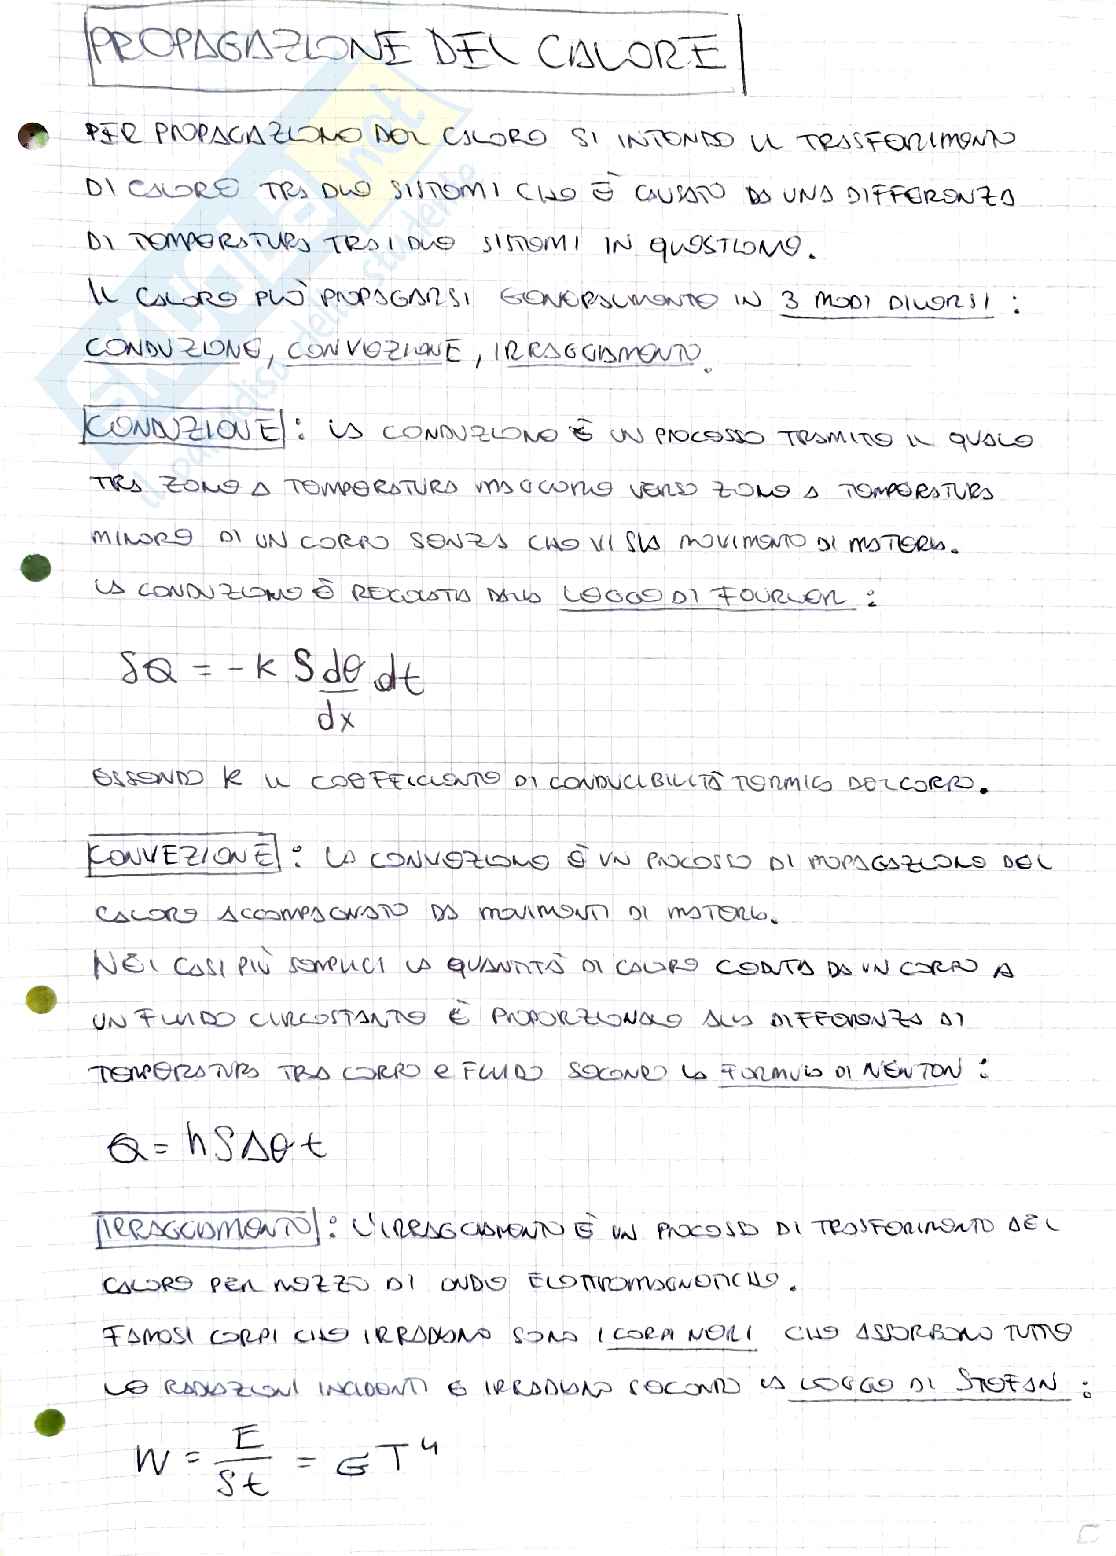 PROPAGAZIONE DEL CALORE
PER PROPAGAZIONE DEL CALORE SI INTENDE IL TRASFERIMENTO
DI CALORE TRA DUE SISTEMI CHE È CAUSATO DA UNA DIFFERENZA
DI TEMPERATURA TRA I DUE SISTEMI IN QUESTIONE.
IL CALORE PUÒ PROPAGARSI GENERALMENTE IN 3 MODI DIVERSI:
CONDUZIONE, CONVEZIONE, IRRAGGIAMENTO.
CONDUZIONE: LA CONDUZIONE È UN PROCESSO TRAMITE IL QUALE
TRA ZONE A TEMPERATURA MAGGIORE VERSO ZONE A TEMPERATURA
MINORE DI UN CORPO SENZA CHE VI SIA MOVIMENTO DI MATERIA.
LA CONDUZIONE È REGOLATA DALLA LEGGE DI FOURIER:
δQ = -k S dθ/dx dt
ESSENDO K IL COEFFICIENTE DI CONDUCIBILITÀ TERMICA DEL CORPO.
CONVEZIONE: LA CONVEZIONE È UN PROCESSO DI PROPAGAZIONE DEL
CALORE ACCOMPAGNATO DA MOVIMENTI DI MATERIA.
NEI CASI PIÙ SEMPLICI LA QUANTITÀ DI CALORE CEDUTA DA UN CORPO A
UN FLUIDO CIRCOSTANTE È PROPORZIONALE ALLA DIFFERENZA DI
TEMPERATURA TRA CORPO E FLUIDO SECONDO LA FORMULA DI NEWTON:
Q = h S Δθ t
IRRAGGIAMENTO: L'IRRAGGIAMENTO È UN PROCESSO DI TRASFERIMENTO DEL
CALORE PER MEZZO DI ONDE ELETTROMAGNETICHE.
FAMOSI CORPI CHE IRRADIANO SONO I CORPI NERI CHE ASSORBONO TUTTE
LE RADIAZIONI INCIDENTI E IRRADIANO SECONDO LA LEGGE DI STEFAN:
W = E/St = σT⁴
skuola.net
il paradiso dello studente